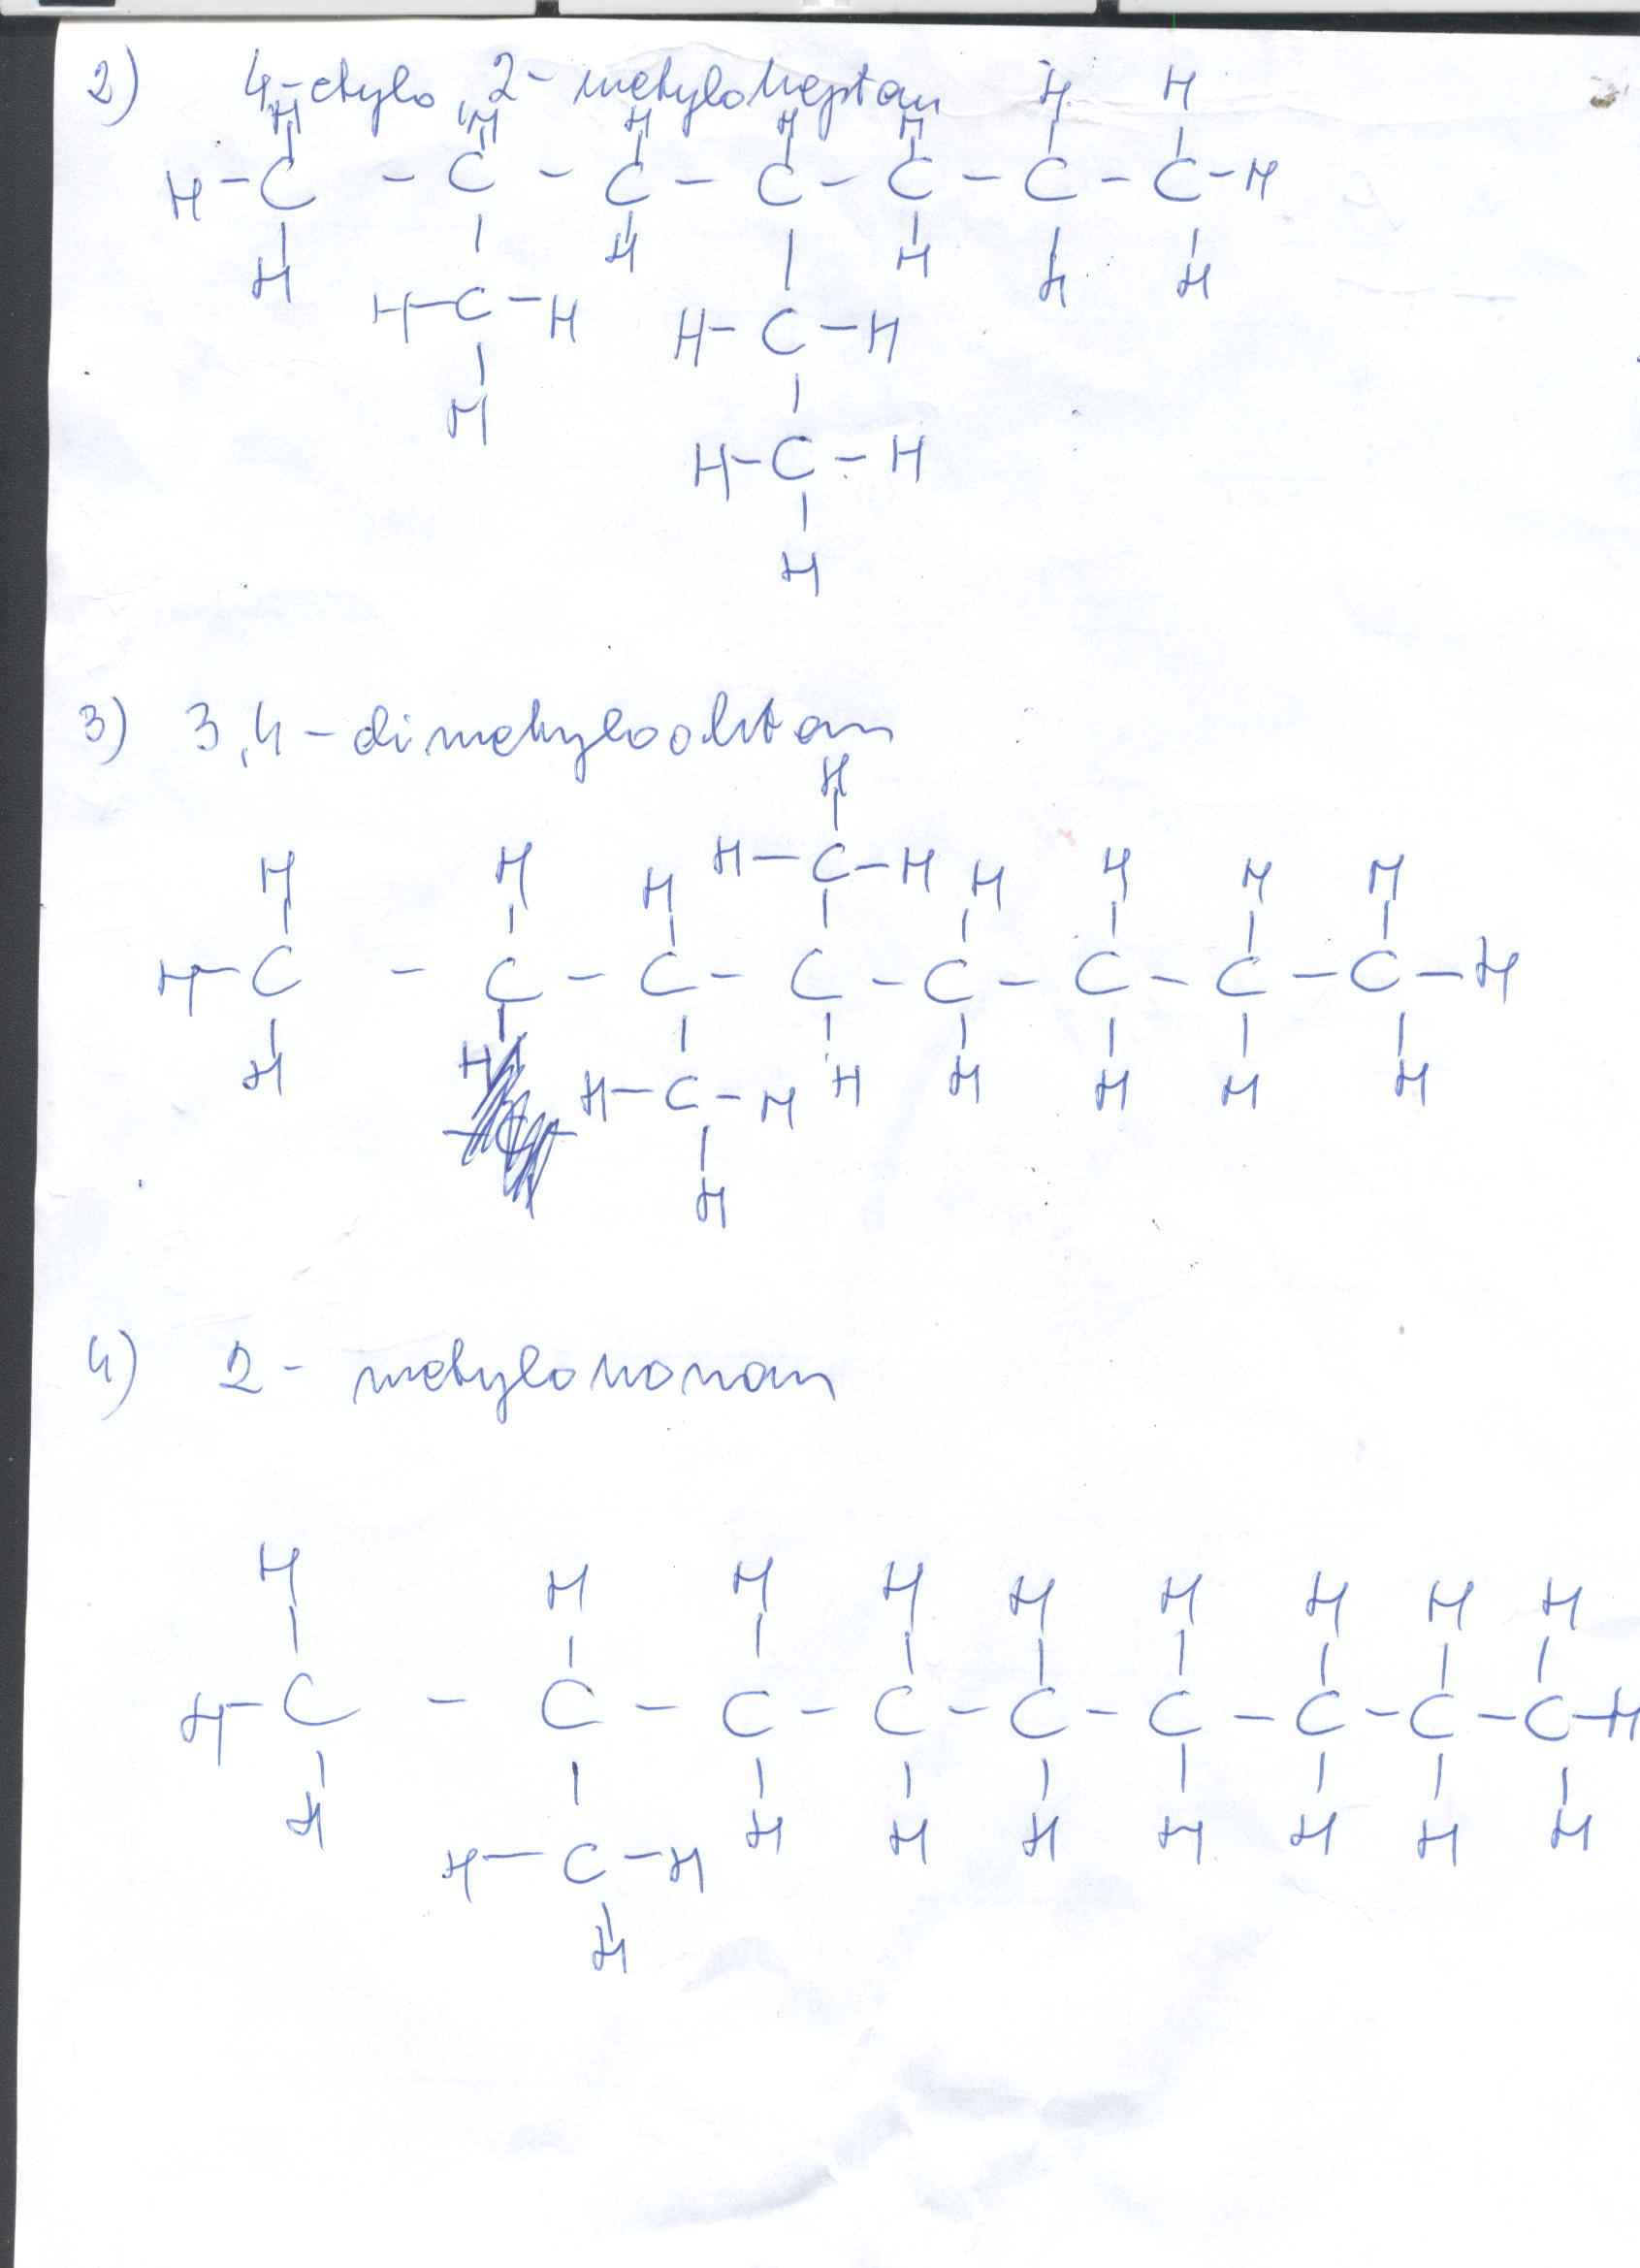 2) 4-etylo, 2-metyloheptan
H H H H H H H
H-C - C - C - C - C - C - C-H
H H H H H
H-C-H H-C-H
H
H-C-H
H
3) 3,4-dimetylooktan
H
H-C-H
H H H H H H H
H-C - C - C - C - C - C - C - C-H
H H H H H H H
H-C-H
H
4) 2- metylononan
H H H H H H H H H
H-C - C - C - C - C - C - C - C - C-H
H H H H H H H H
H-C-H
H